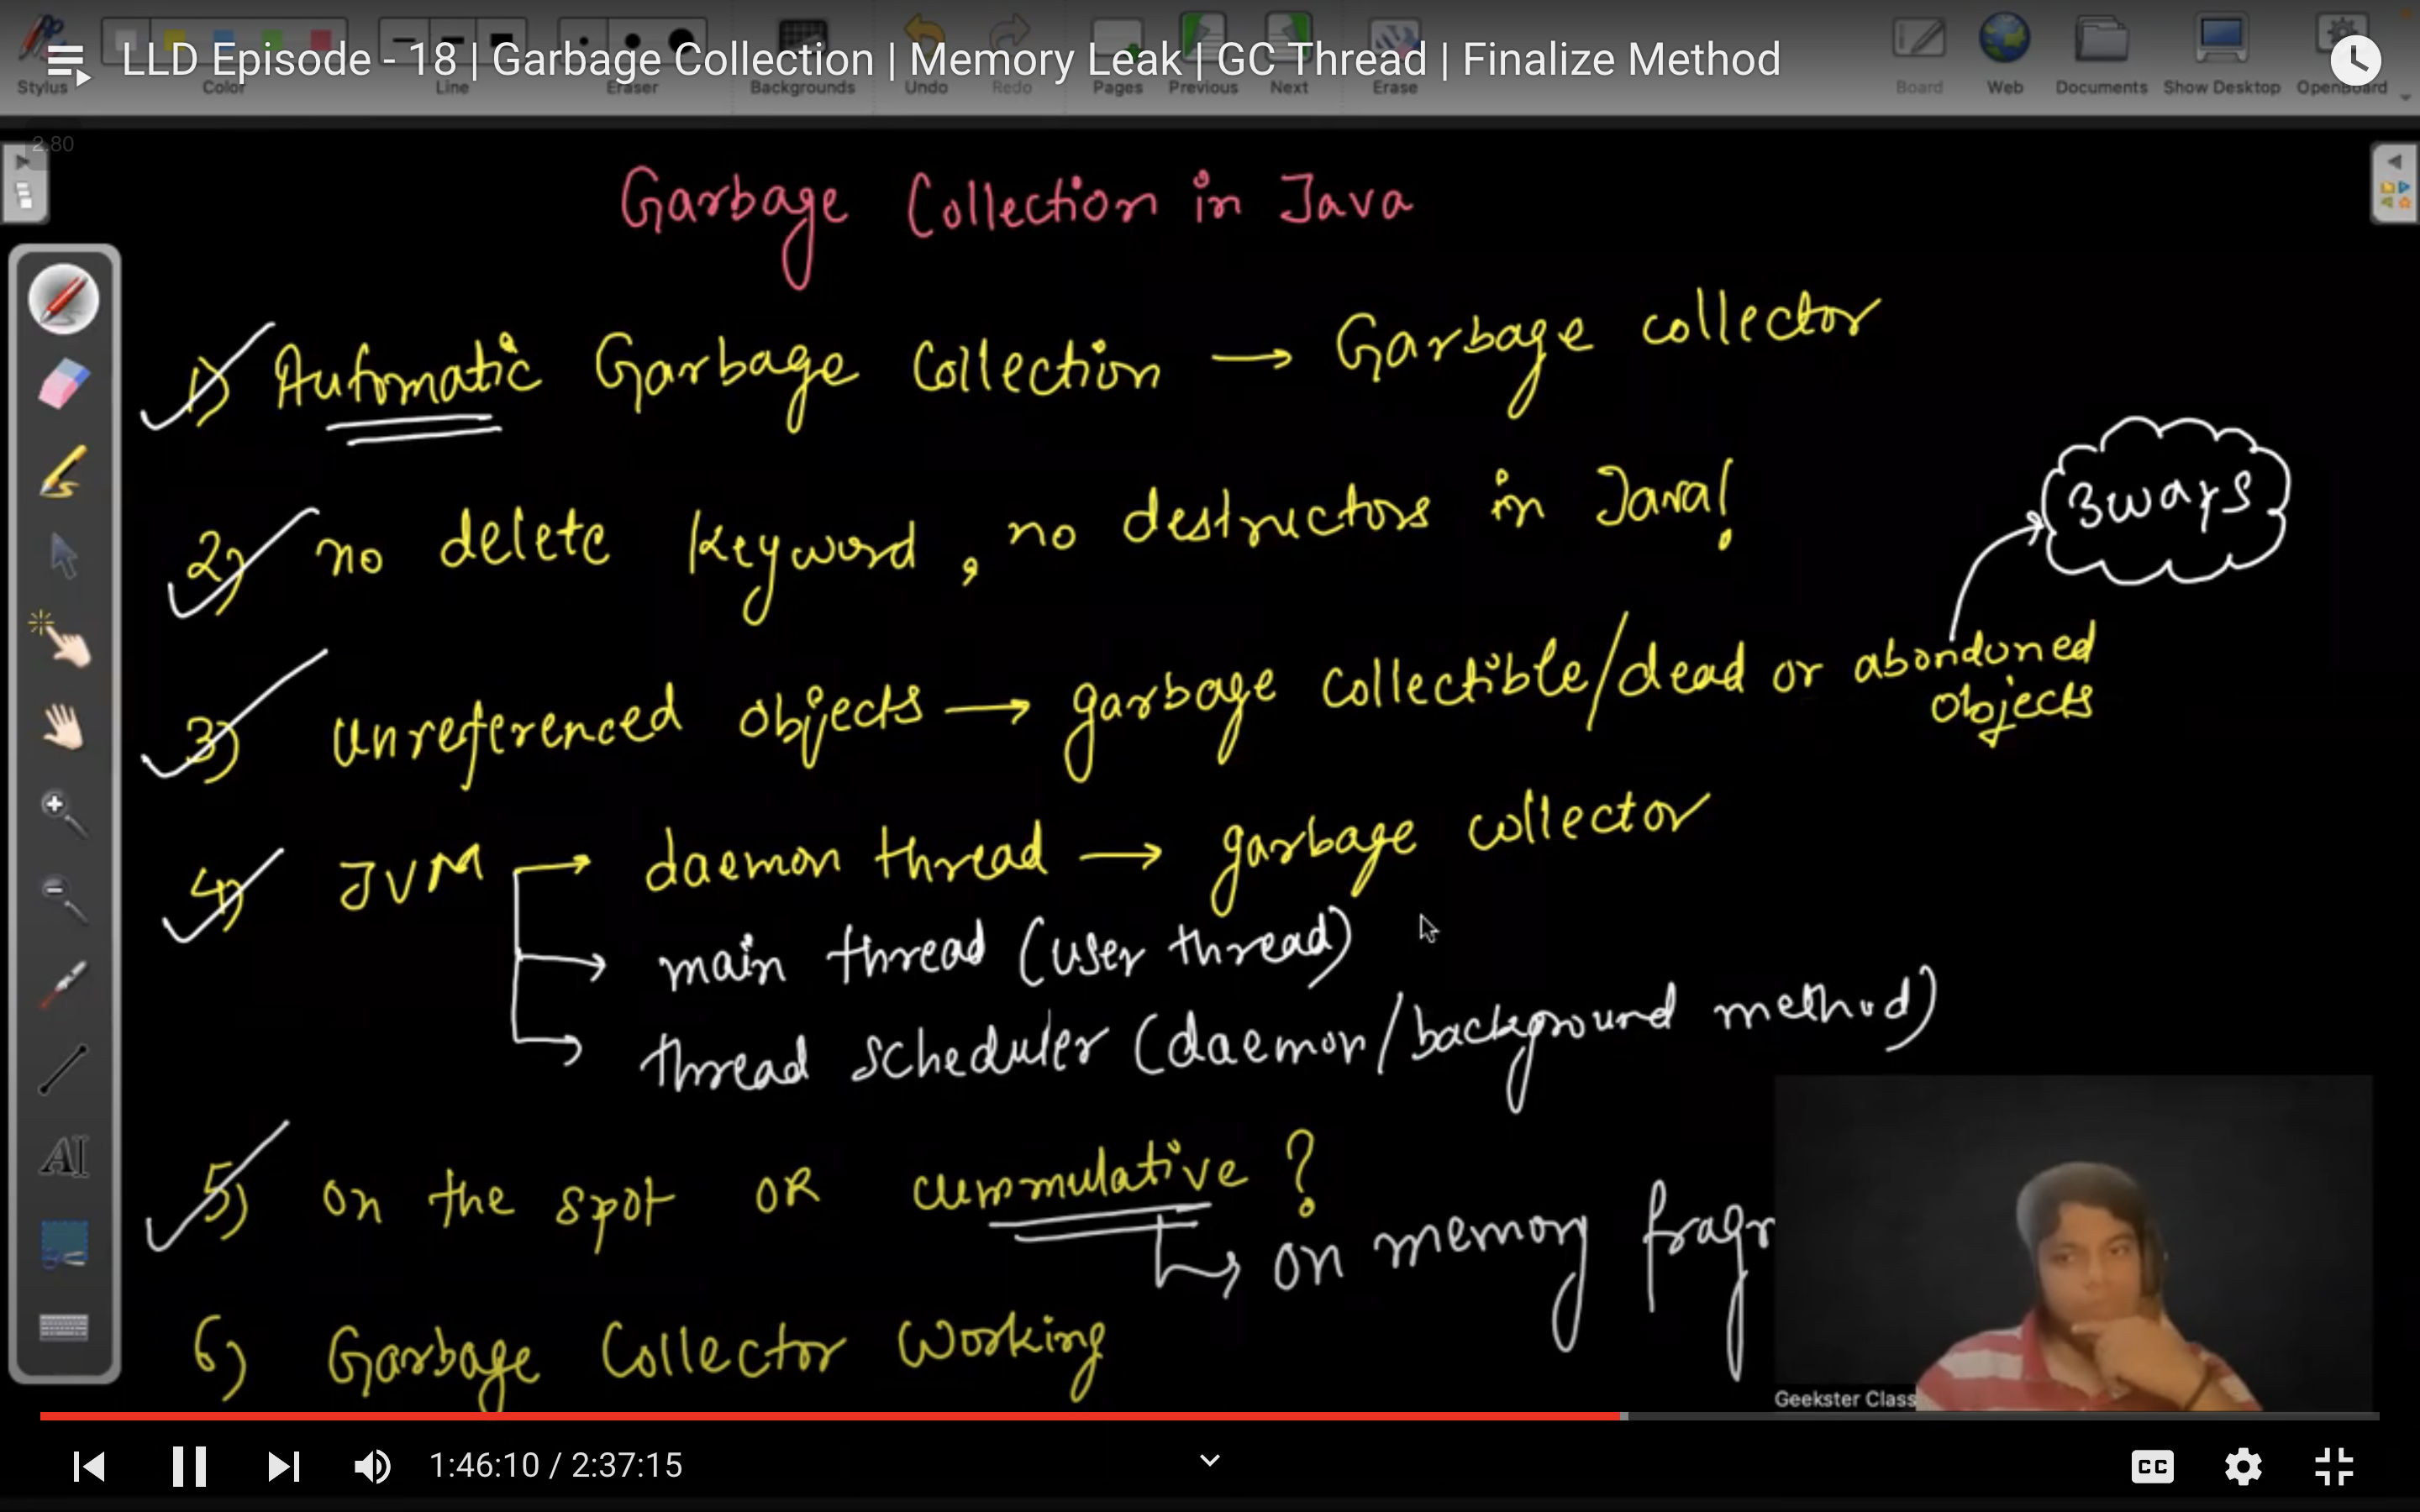 LLD Episode - 18 | Garbage Collection | Memory Leak | GC Thread | Finalize Method
Stylus Color Line Eraser Backgrounds Undo Redo Pages Previous Next Erase Board Web Documents Show Desktop OpenBoard
2.80
Garbage Collection in Java
1) Automatic Garbage Collection → Garbage collector
2) no delete keyword, no destructors in Java!
3ways
3) unreferenced objects → garbage collectible/dead or abondoned
objects
4) JVM → daemon thread → garbage collector
→ main thread (user thread)
→ thread scheduler (daemon/background method)
5) on the spot OR cummulative?
→ on memory fragr
6) Garbage Collector Working
AI
Geekster Class
1:46:10 / 2:37:15
CC